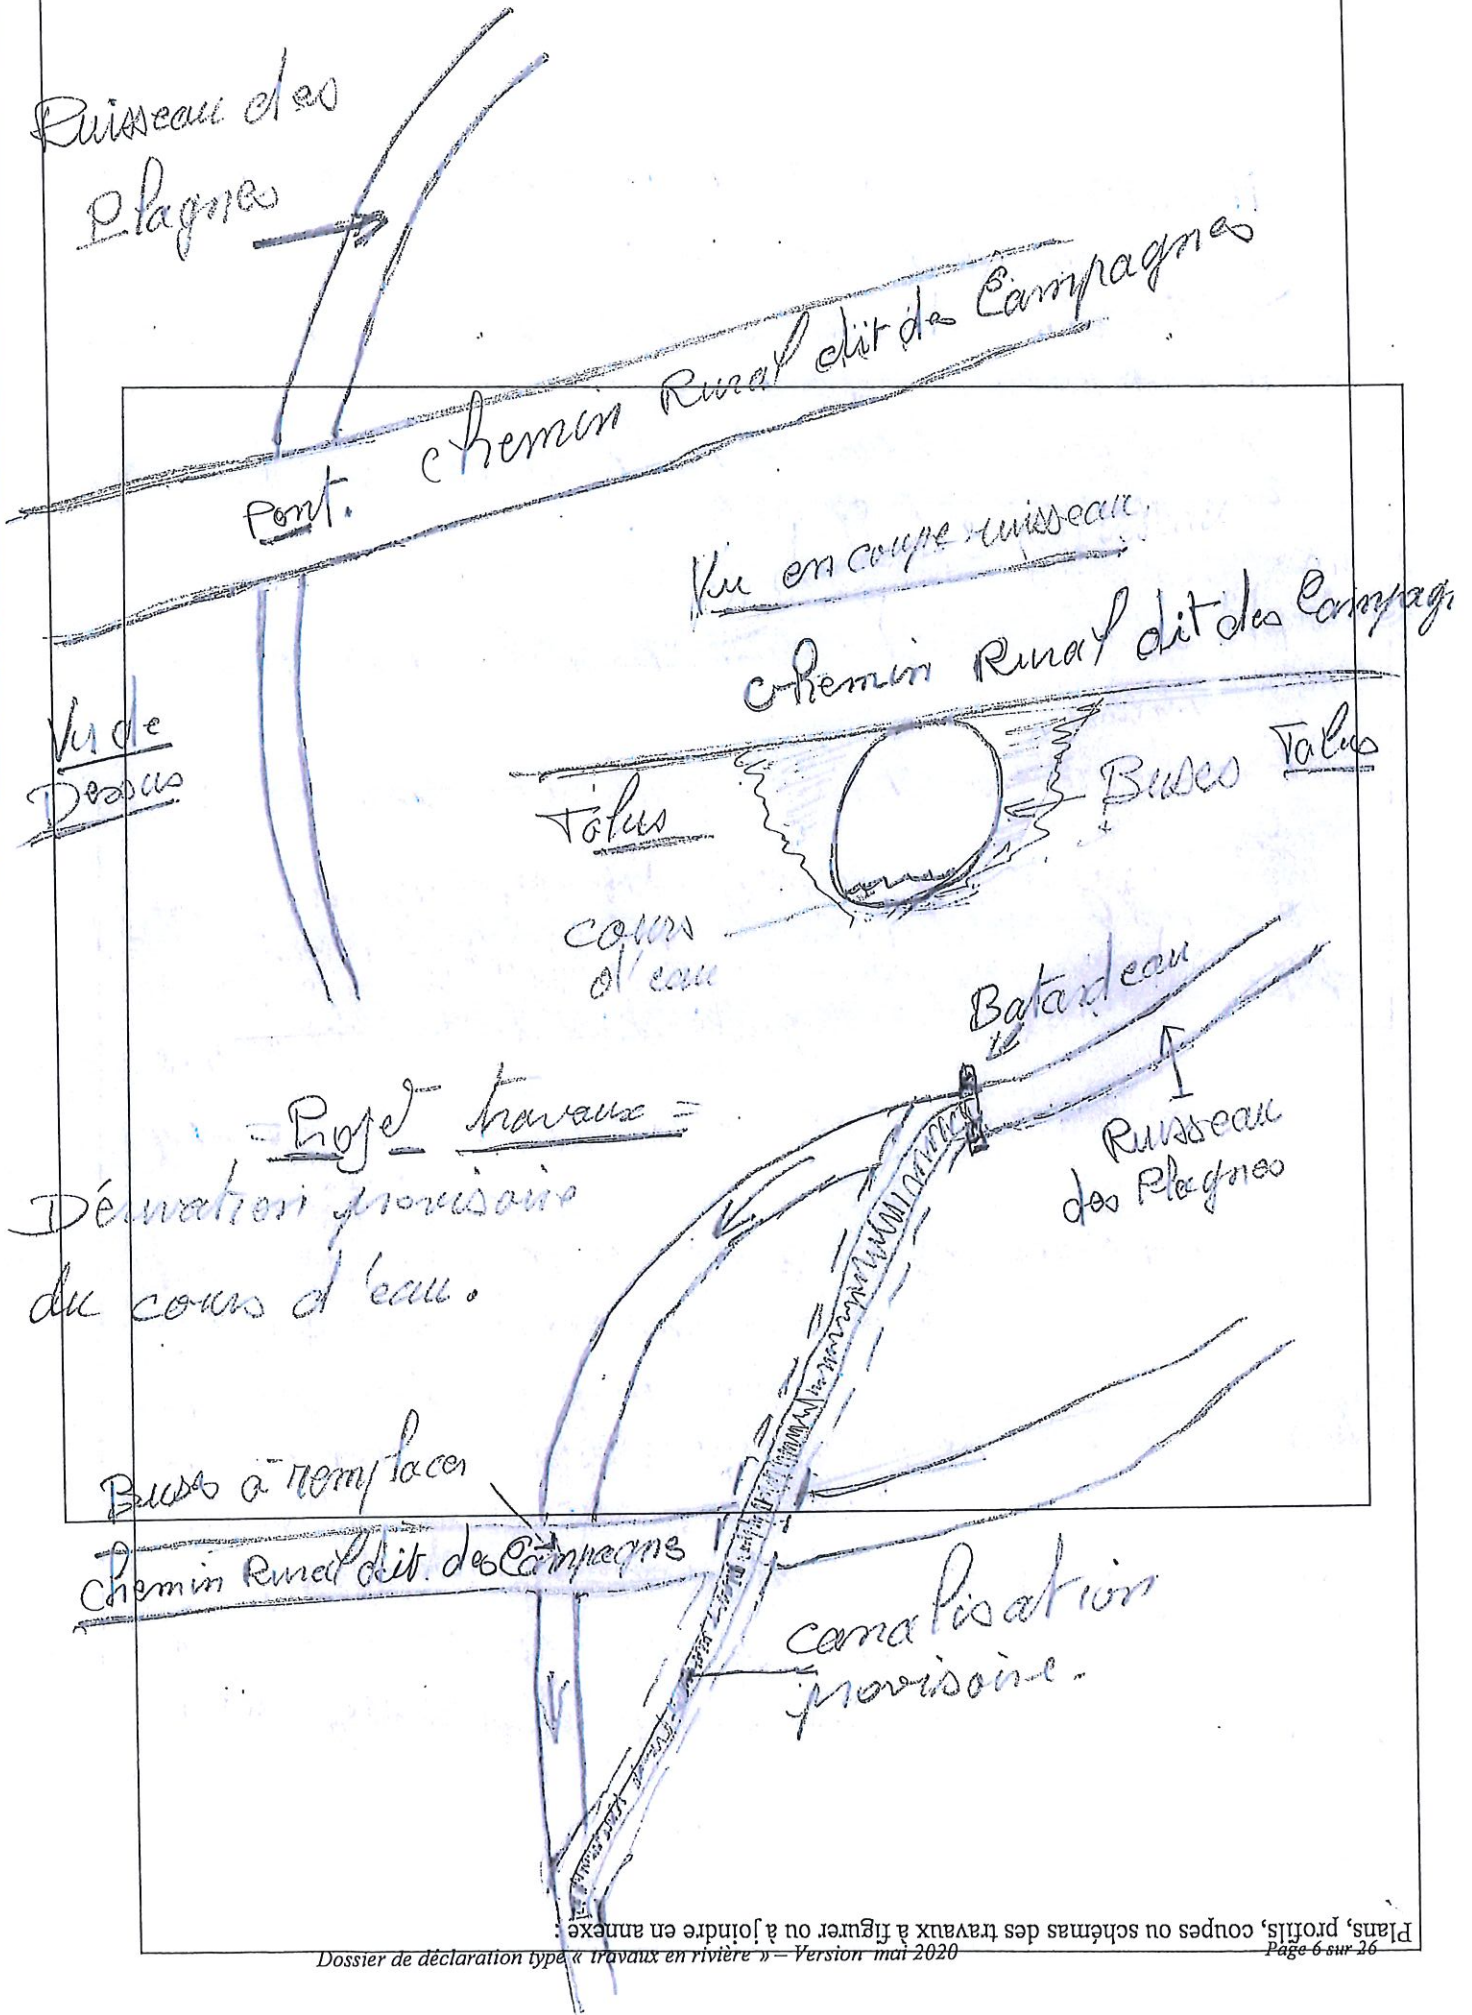 Ruisseau des
Plagnes
chemin Rural dit des Campagnes
Pont.
Vu en coupe ruisseau.
chemin Rural dit des Campag
Vu de
Dessus
Talus
Buses
Talus
cours
d'eau
Batardeau
= Projet travaux =
Ruisseau
des Plagnes
Dérivation provisoire
du cours d'eau.
Buses à remplacer
chemin Rural dit des Campagnes
canalisation
provisoire.
Plans, profils, coupes ou schémas des travaux à figurer ou à joindre en annexe :
Dossier de déclaration type « travaux en rivière » – Version mai 2020
Page 6 sur 26